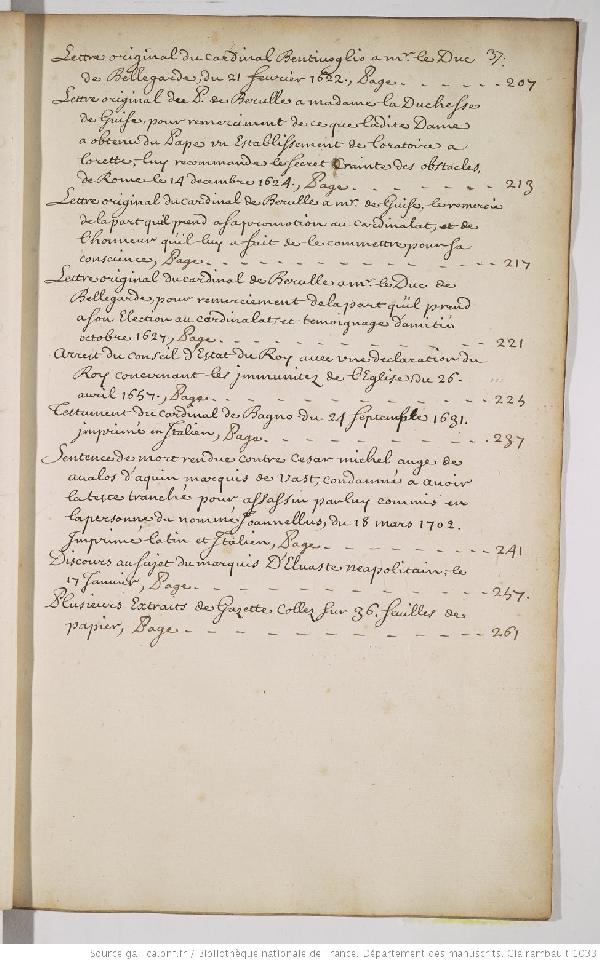 37.
Lettre original du cardinal Bentiuoglio a mr. le Duc
de Bellegarde, du 21 feurier 1622., Page - - - - - - 207
Lettre original de P. de Berulle a madame la Duchesse
de Guise, pour remerciment de ce que ladite Dame
a obtenu du Pape vn Establissement de loratoire a
lorette; luy recommande le secret Crainte des obstacles,
de Rome le 14 decembre 1624., Page - - - - - - 213
Lettre original du cardinal de Berulle a mr. de Guise, le remercie
de la part quil prend a sa promotion au cardinalat, et de
l'honneur quil luy a fait de le commettre pour sa
conscience, Page - - - - - - 217
Lettre original du cardinal de Berulle a mr. le Duc de
Bellegarde pour remerciement de la part quil prend
a son Election au cardinalat, et temoignage damitié
octobre 1627., Page - - - - - - 221
Arrest du conseil d'Estat du Roy auec vne declaration du
Roy concernant les immunitez de l'Eglise du 26.
auril 1657., Page - - - - - - 225
Testament du cardinal de Bagno du 24 Septembre 1631.
imprimé en Italien, Page - - - - - - 237
Sentence de mort rendue contre Cesar michel ange de
aualos d'aquin marquis de Vast, condamné a auoir
la teste tranché pour assassin par luy commis en
la personne du nommé Joannellus, du 18 mars 1702.
Imprimé latin et Italien, Page - - - - - - 241
Discours au sujet du marquis D'Eluaste neapolitain; le
17 Januier, Page - - - - - - 257.
Plusieurs Extraits de Gazette Collez sur 36. feuilles de
papier, Page - - - - - - 261
Source gallica.bnf.fr / Bibliothèque nationale de France. Département des manuscrits. Clairambault 1033